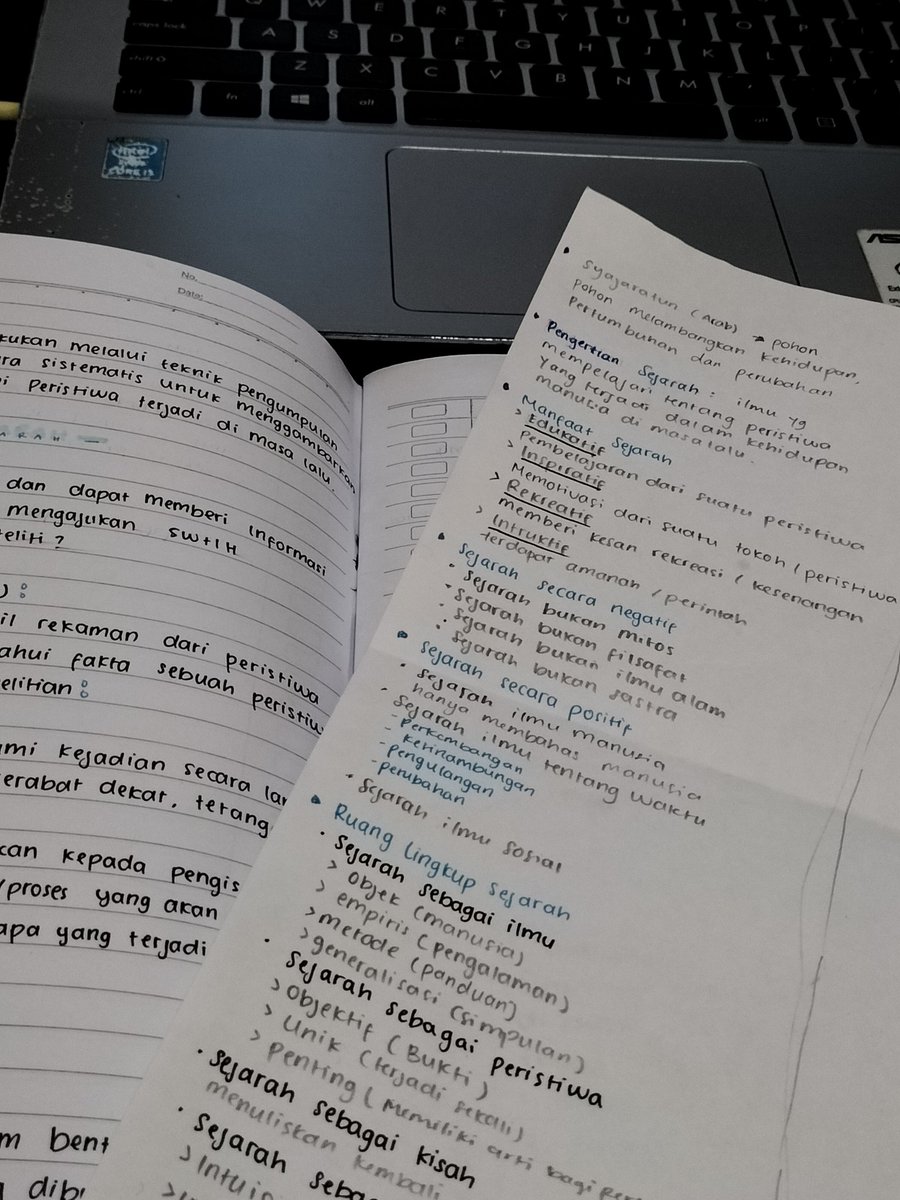 caps lock
A S D F G H J K L
shift
Z X C V B N M
ctrl
fn
alt
alt
intel
CORE i3
No.
Date:
kukan melalui teknik pengumpulan
ra sistematis untuk menggambarkan
i peristiwa terjadi di masa lalu.
dan dapat memberi informasi
mengajukan 5W+1H
teliti?
il rekaman dari peristiwa
ahui fakta sebuah peristiw
elitian :
ami kejadian secara lan
kerabat dekat, terang
kan kepada pengis
/proses yang akan
apa yang terjadi
m bent
dibu
• Syajaratun (Arab) → pohon
pohon melambangkan kehidupan,
pertumbuhan dan perubahan
• Pengertian Sejarah : ilmu yg
mempelajari tentang peristiwa
yang terjadi dalam kehidupan
manusia di masa lalu.
• Manfaat Sejarah
> Edukatif
Pembelajaran dari suatu peristiwa
> Inspiratif
Memotivasi dari suatu tokoh / peristiwa
> Rekreatif
memberi kesan rekreasi / kesenangan
> Intruktif
terdapat amanah / perintah
• Sejarah secara negatif
• Sejarah bukan mitos
• Sejarah bukan filsafat
• Sejarah bukan ilmu alam
• Sejarah bukan sastra
• Sejarah secara positif
• Sejarah ilmu manusia
hanya membahas manusia
• Sejarah ilmu tentang waktu
- perkembangan
- kesinambungan
- pengulangan
- perubahan
• Sejarah ilmu sosial
• Ruang lingkup sejarah
• Sejarah sebagai ilmu
> objek (manusia)
> empiris (pengalaman)
> metode (panduan)
> generalisasi (simpulan)
• Sejarah sebagai peristiwa
> Objektif (Bukti)
> Unik (terjadi sekali)
> Penting (memiliki arti bagi
• Sejarah sebagai kisah
menuliskan kembali
• Sejarah seba
> Intuis